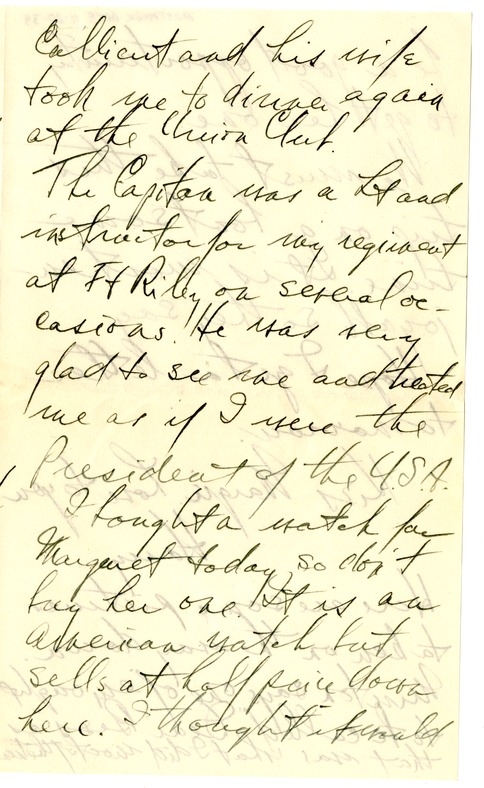 Callicut and his wife
took me to dinner again
at the Union Club.
The Capitan was a Lt and
instructor for my regiment
at Ft Riley on several oc-
casions. He was very
glad to see me and treated
me as if I were the
President of the U.S.A.
I bought a watch for
Margaret today so don't
buy her one. It is an
American watch but
sells at half price down
here. I thought it would